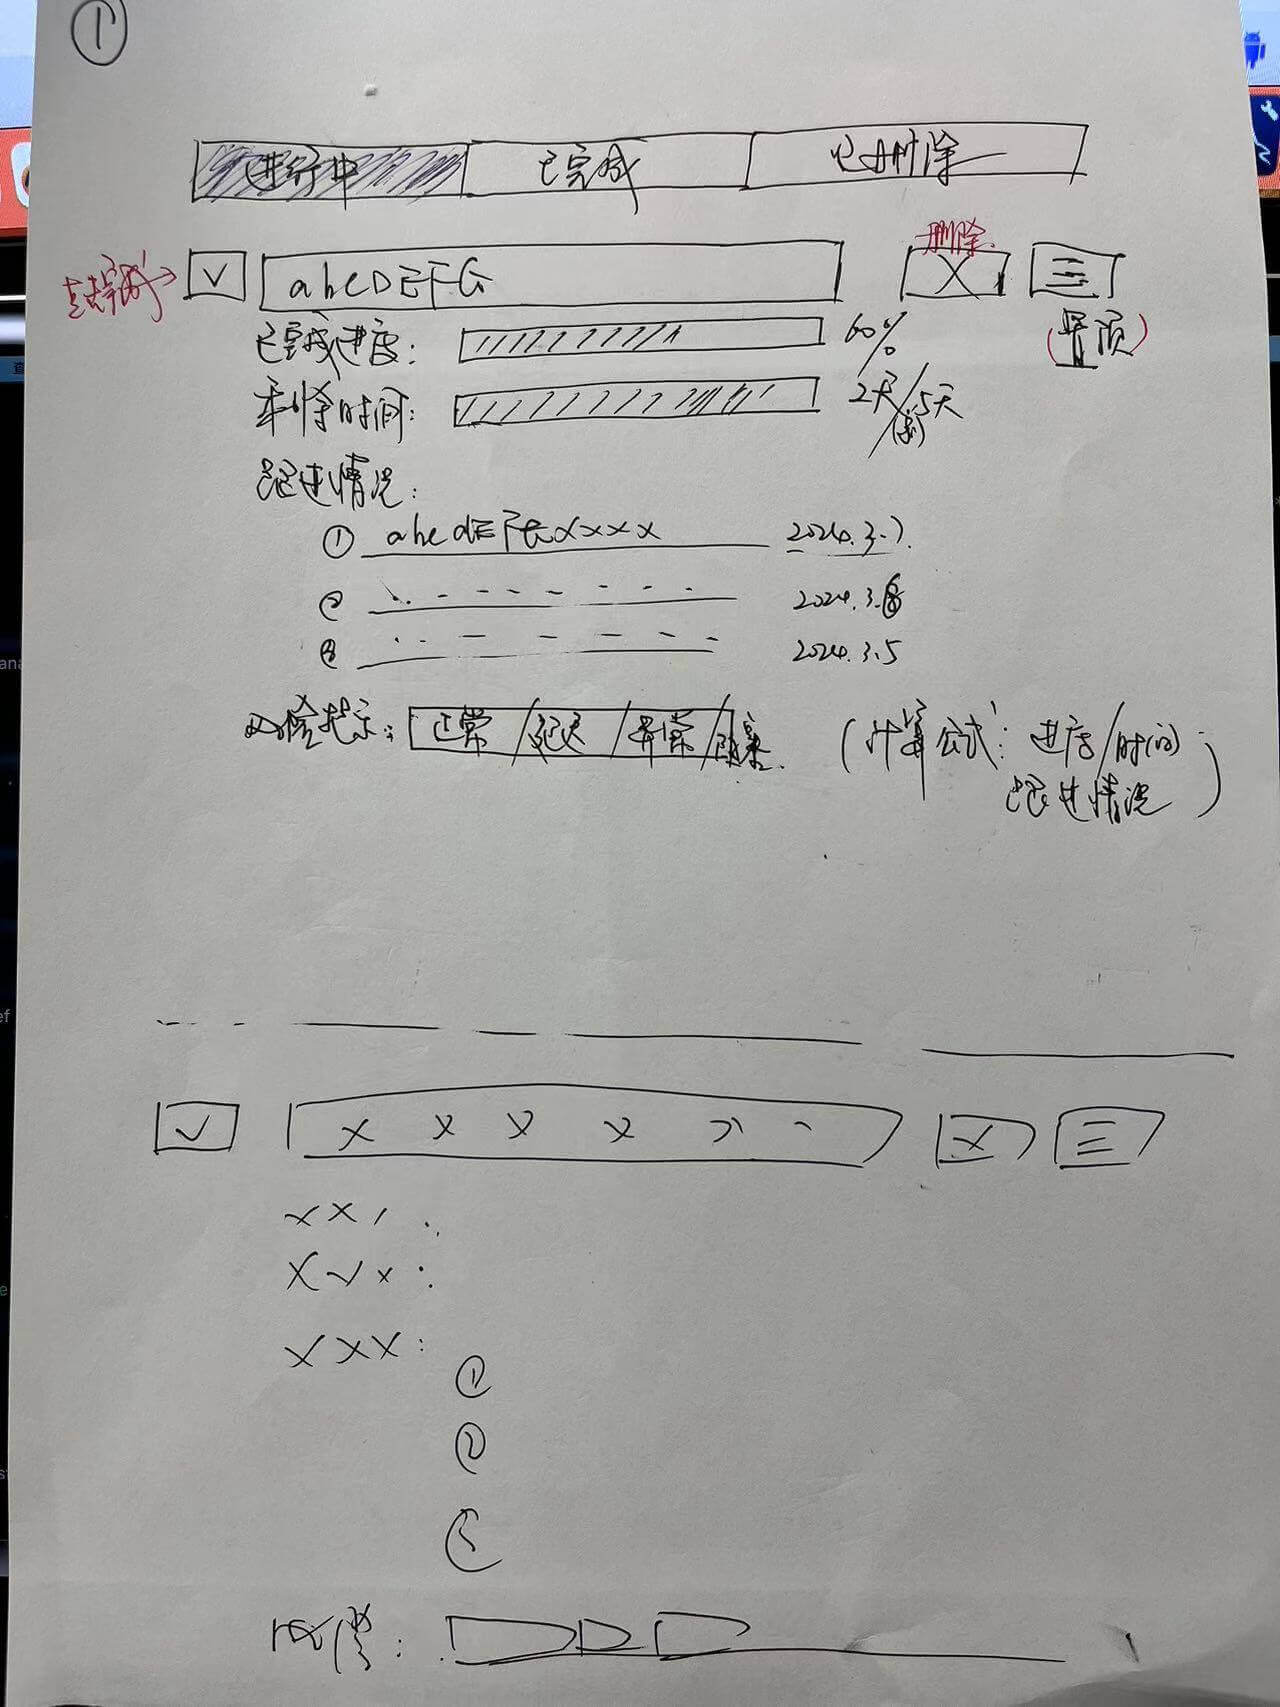 ①
进行中 已完成 已删除
点击完成 ✓ abcDEFG 删除 X 三
(置顶)
已完成进度: 60%
剩余时间: 2天/5天
跟进情况:
① 2024.3.7
② 2024.3.6
③ 2024.3.5
风险提示: 正常/延迟/异常/ (计算公式: 进度/时间
跟进情况)
✓ X X X X X 三
①
②
③
风险: